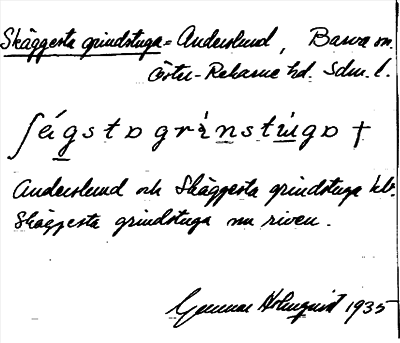 Skäggesta grindstuga = Anderslund, Barva sn.
Öster-Rekarne hd. Sdm. l.
ʃágstɒ grìnstùgɒ †
Anderslund och Skäggesta grindstuga
Skäggesta grindstuga nu riven.
Gunnar Holmquist 1935